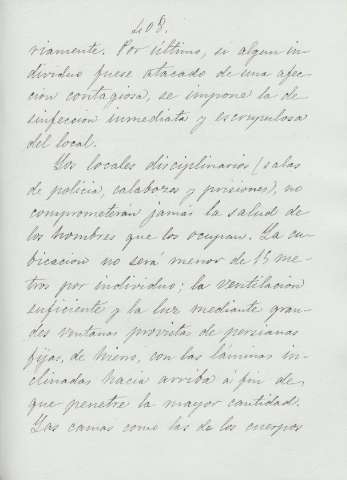 408.
riamente. Por último, si algun in-
dividuo fuese atacado de una afec-
cion contagiosa, se impone la de-
sinfeccion inmediata y escrupulosa
del local.
Los locales disciplinarios (salas
de policia, calabozos y prisiones), no
comprometerán jamás la salud de
los hombres que los ocupan. La cu-
bicacion no será menor de 15 me-
tros por individuo; la ventilacion
suficiente y la luz mediante gran-
des ventanas provistas de persianas
fijas, de hierro, con las láminas in-
clinadas hacia arriba á fin de
que penetre la mayor cantidad.
Las camas como las de los cuerpos